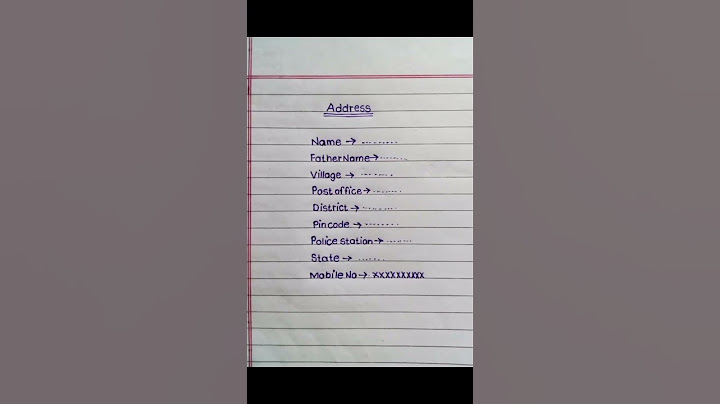 Address
Name → .........
Father Name → .......
Village → ........
Post office → .......
District → .........
Pincode → ........
Police station → .......
State → .......
Mobile No → xxxxxxxxxx